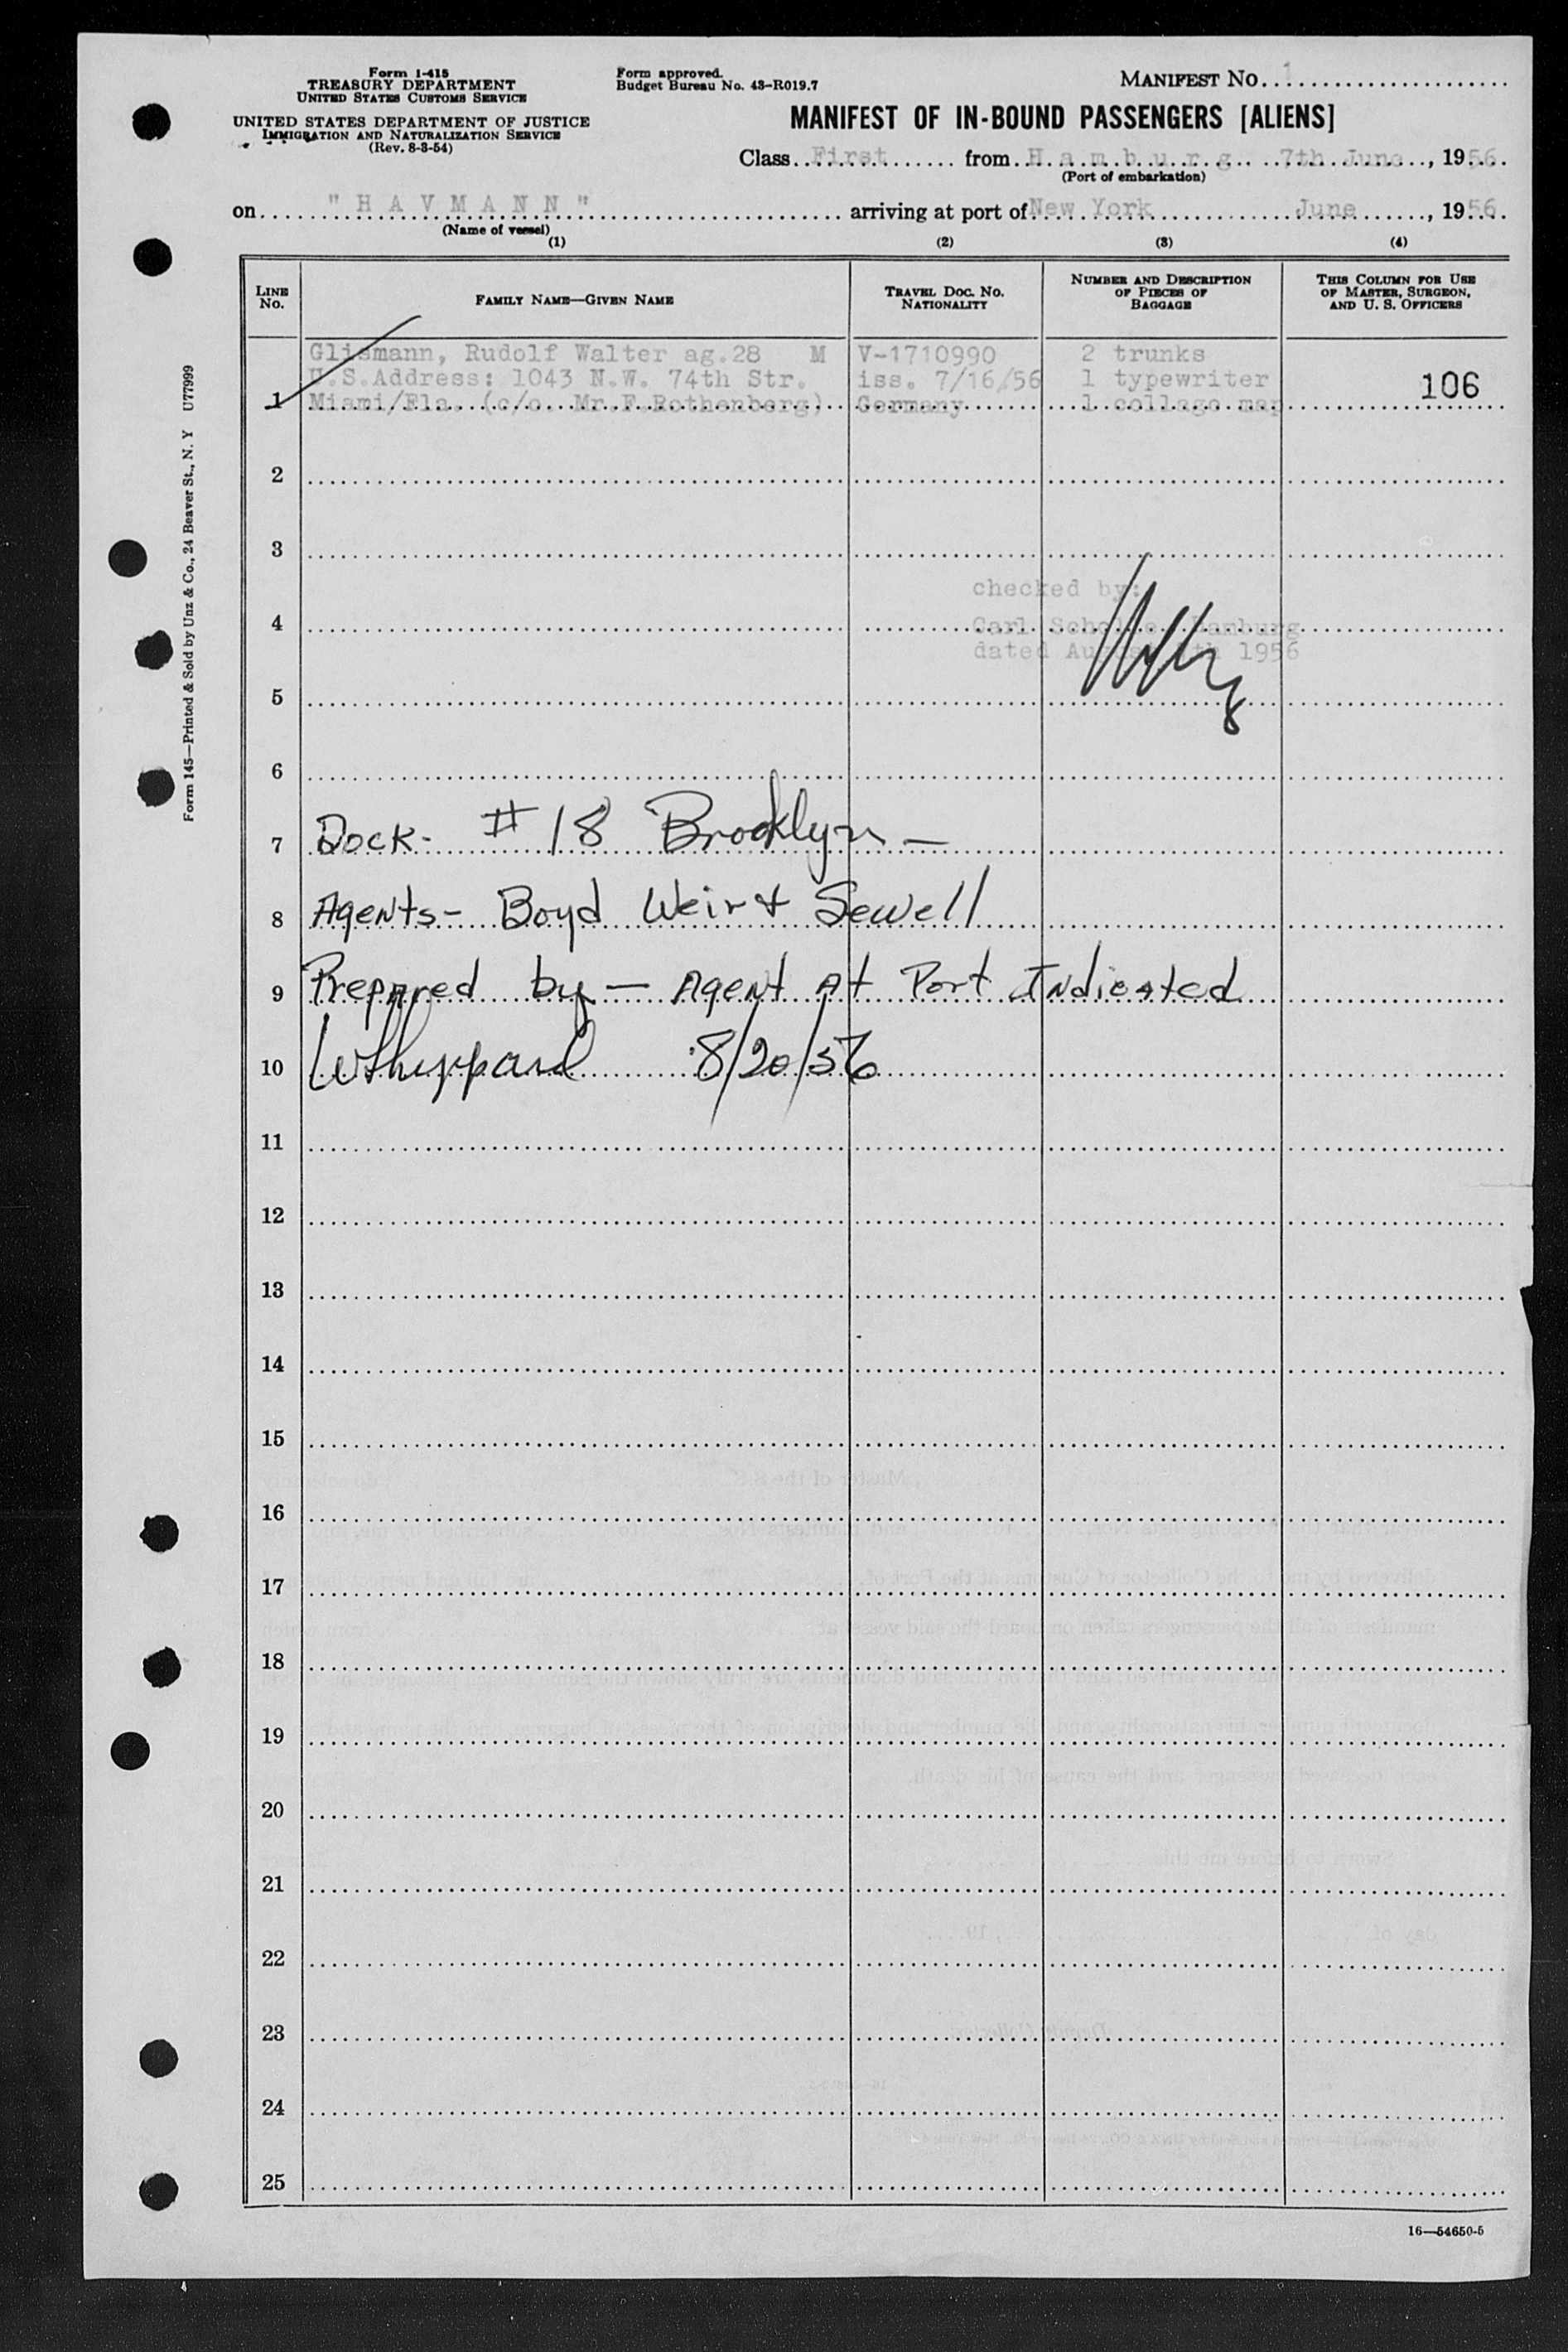 Form I-415
TREASURY DEPARTMENT
UNITED STATES CUSTOMS SERVICE
UNITED STATES DEPARTMENT OF JUSTICE
IMMIGRATION AND NATURALIZATION SERVICE
(Rev. 8-3-54)
Form approved.
Budget Bureau No. 43-R019.7
MANIFEST NO. 1
MANIFEST OF IN-BOUND PASSENGERS [ALIENS]
Class First from Hamburg 7th June, 1956
(Port of embarkation)
on "HAVMANN" arriving at port of New York June, 1956
(Name of vessel)
(1) (2) (3) (4)
LINE NO. FAMILY NAME—GIVEN NAME TRAVEL DOC. NO. NATIONALITY NUMBER AND DESCRIPTION OF PIECES OF BAGGAGE THIS COLUMN FOR USE OF MASTER, SURGEON, AND U. S. OFFICERS
Glismann, Rudolf Walter ag.28 M V-1710990 2 trunks
U.S.Address: 1043 N.W. 74th Str. iss. 7/16/56 1 typewriter
1 Miami/Fla. (c/o. Mr.F.Rothenberg) Germany 1 collage map 106
2
3
checked by:
4 Carl Hamburg
dated 1956
5
6
7 Dock- #18 Brooklyn —
8 Agents- Boyd Weir & Sewell
9 Prepared by — Agent At Port Indicated
10 8/20/56
11
12
13
14
15
16
17
18
19
20
21
22
23
24
25
16—54650-5
Form 145—Printed & Sold by Unz & Co., 24 Beaver St., N. Y U77999